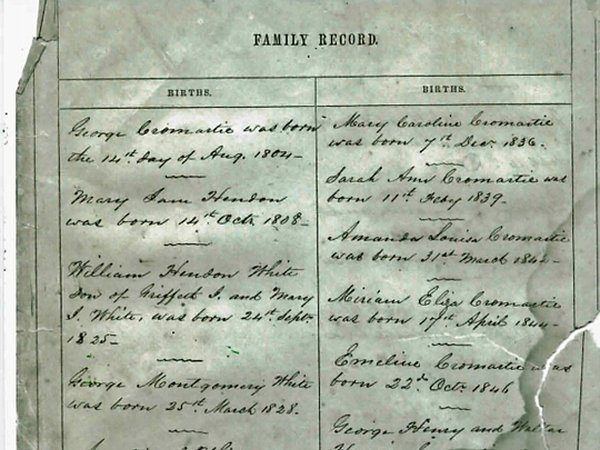 FAMILY RECORD.
BIRTHS.
George Cromartie was born
the 14th day of Aug. 1804-
Mary Jane Hendon
was born 14th Octr 1808-
William Hendon White
Son of Griffeth J. and Mary
J. White, was born 24th Sept.
1825-
George Montgomery White
was born 25th March 1828.
BIRTHS.
Mary Caroline Cromartie
was born 7th Decr 1836.
Sarah Ann Cromartie was
born 11th Feby 1839-
Amanda Louisa Cromartie
was born 31st March
Miriam Eliza Cromartie
was born 17th April 1844-
Emeline Cromartie was
born 22d Octr 1846
George Henry and Walter